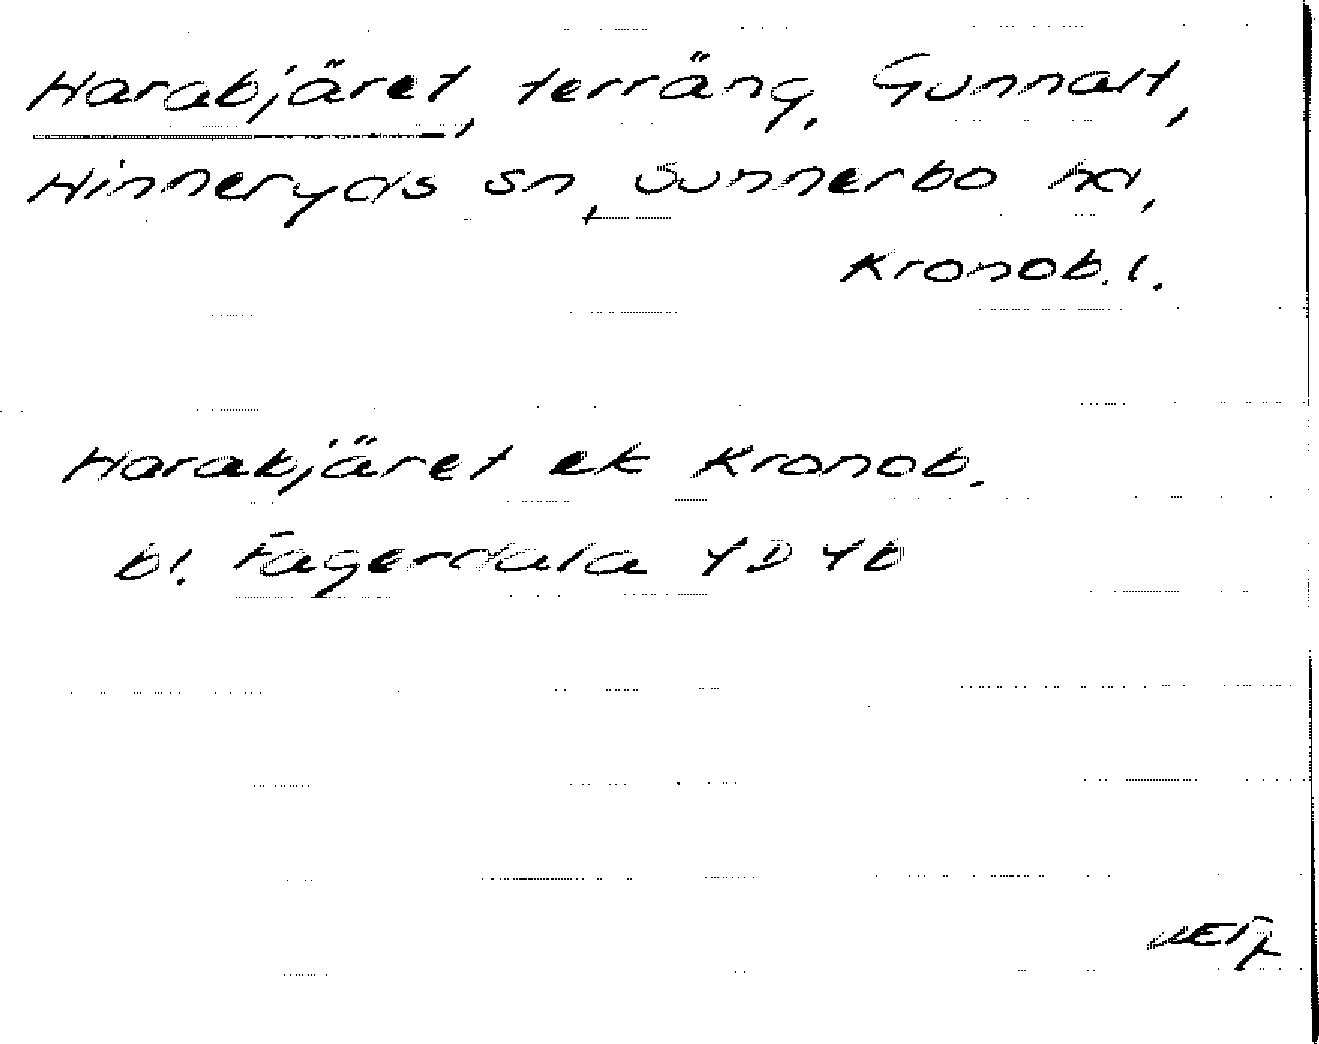 Harabjäret, terräng, Gunnalt,
Hinneryds sn, Sunnerbo hd,
Kronob. l.
Harabjäret ek Kronob.
bl. Fagerdala 4D4b